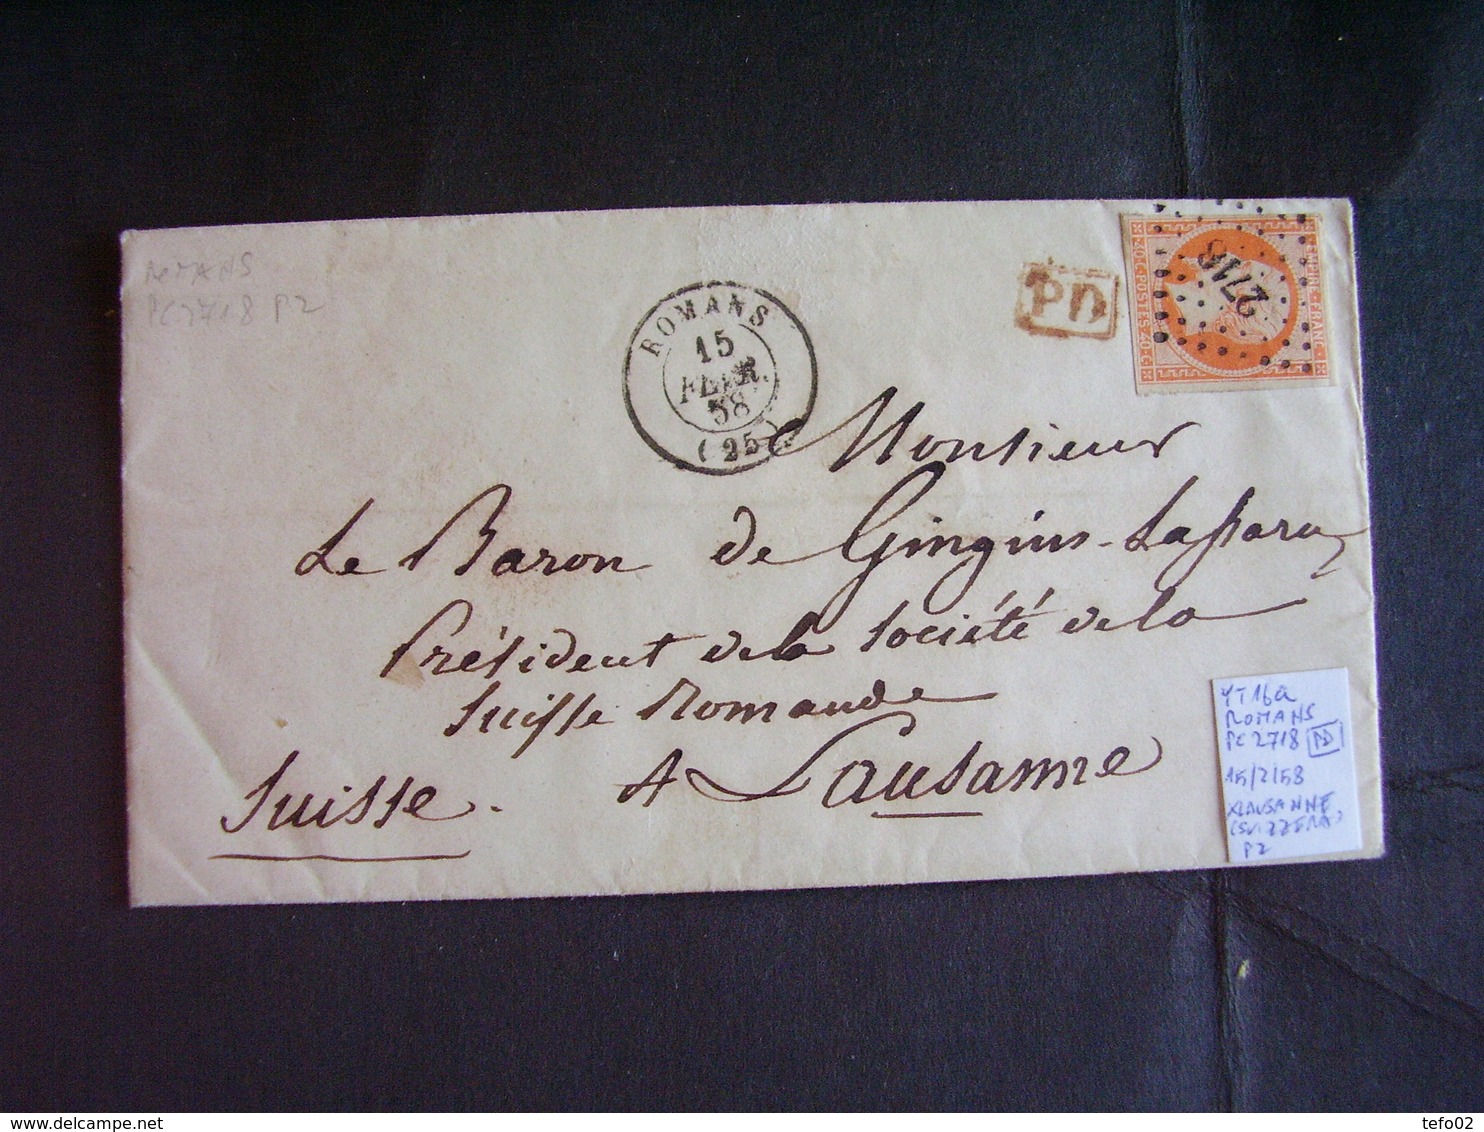 ROMANS
PC 2718 P2
ROMANS
15
FEVR.
58
(25)
PD
EMPIRE-FRANC-
2718
40.C-POSTES-40.C
Monsieur
Le Baron de Gingins-Lassaraz
Président de la Société de la
Suisse Romande
A Lausanne
Suisse.
YT16a
ROMANS
PC2718 PD
15/2/58
XLAUSANNE
(SVIZZERA)
P2
tefo02